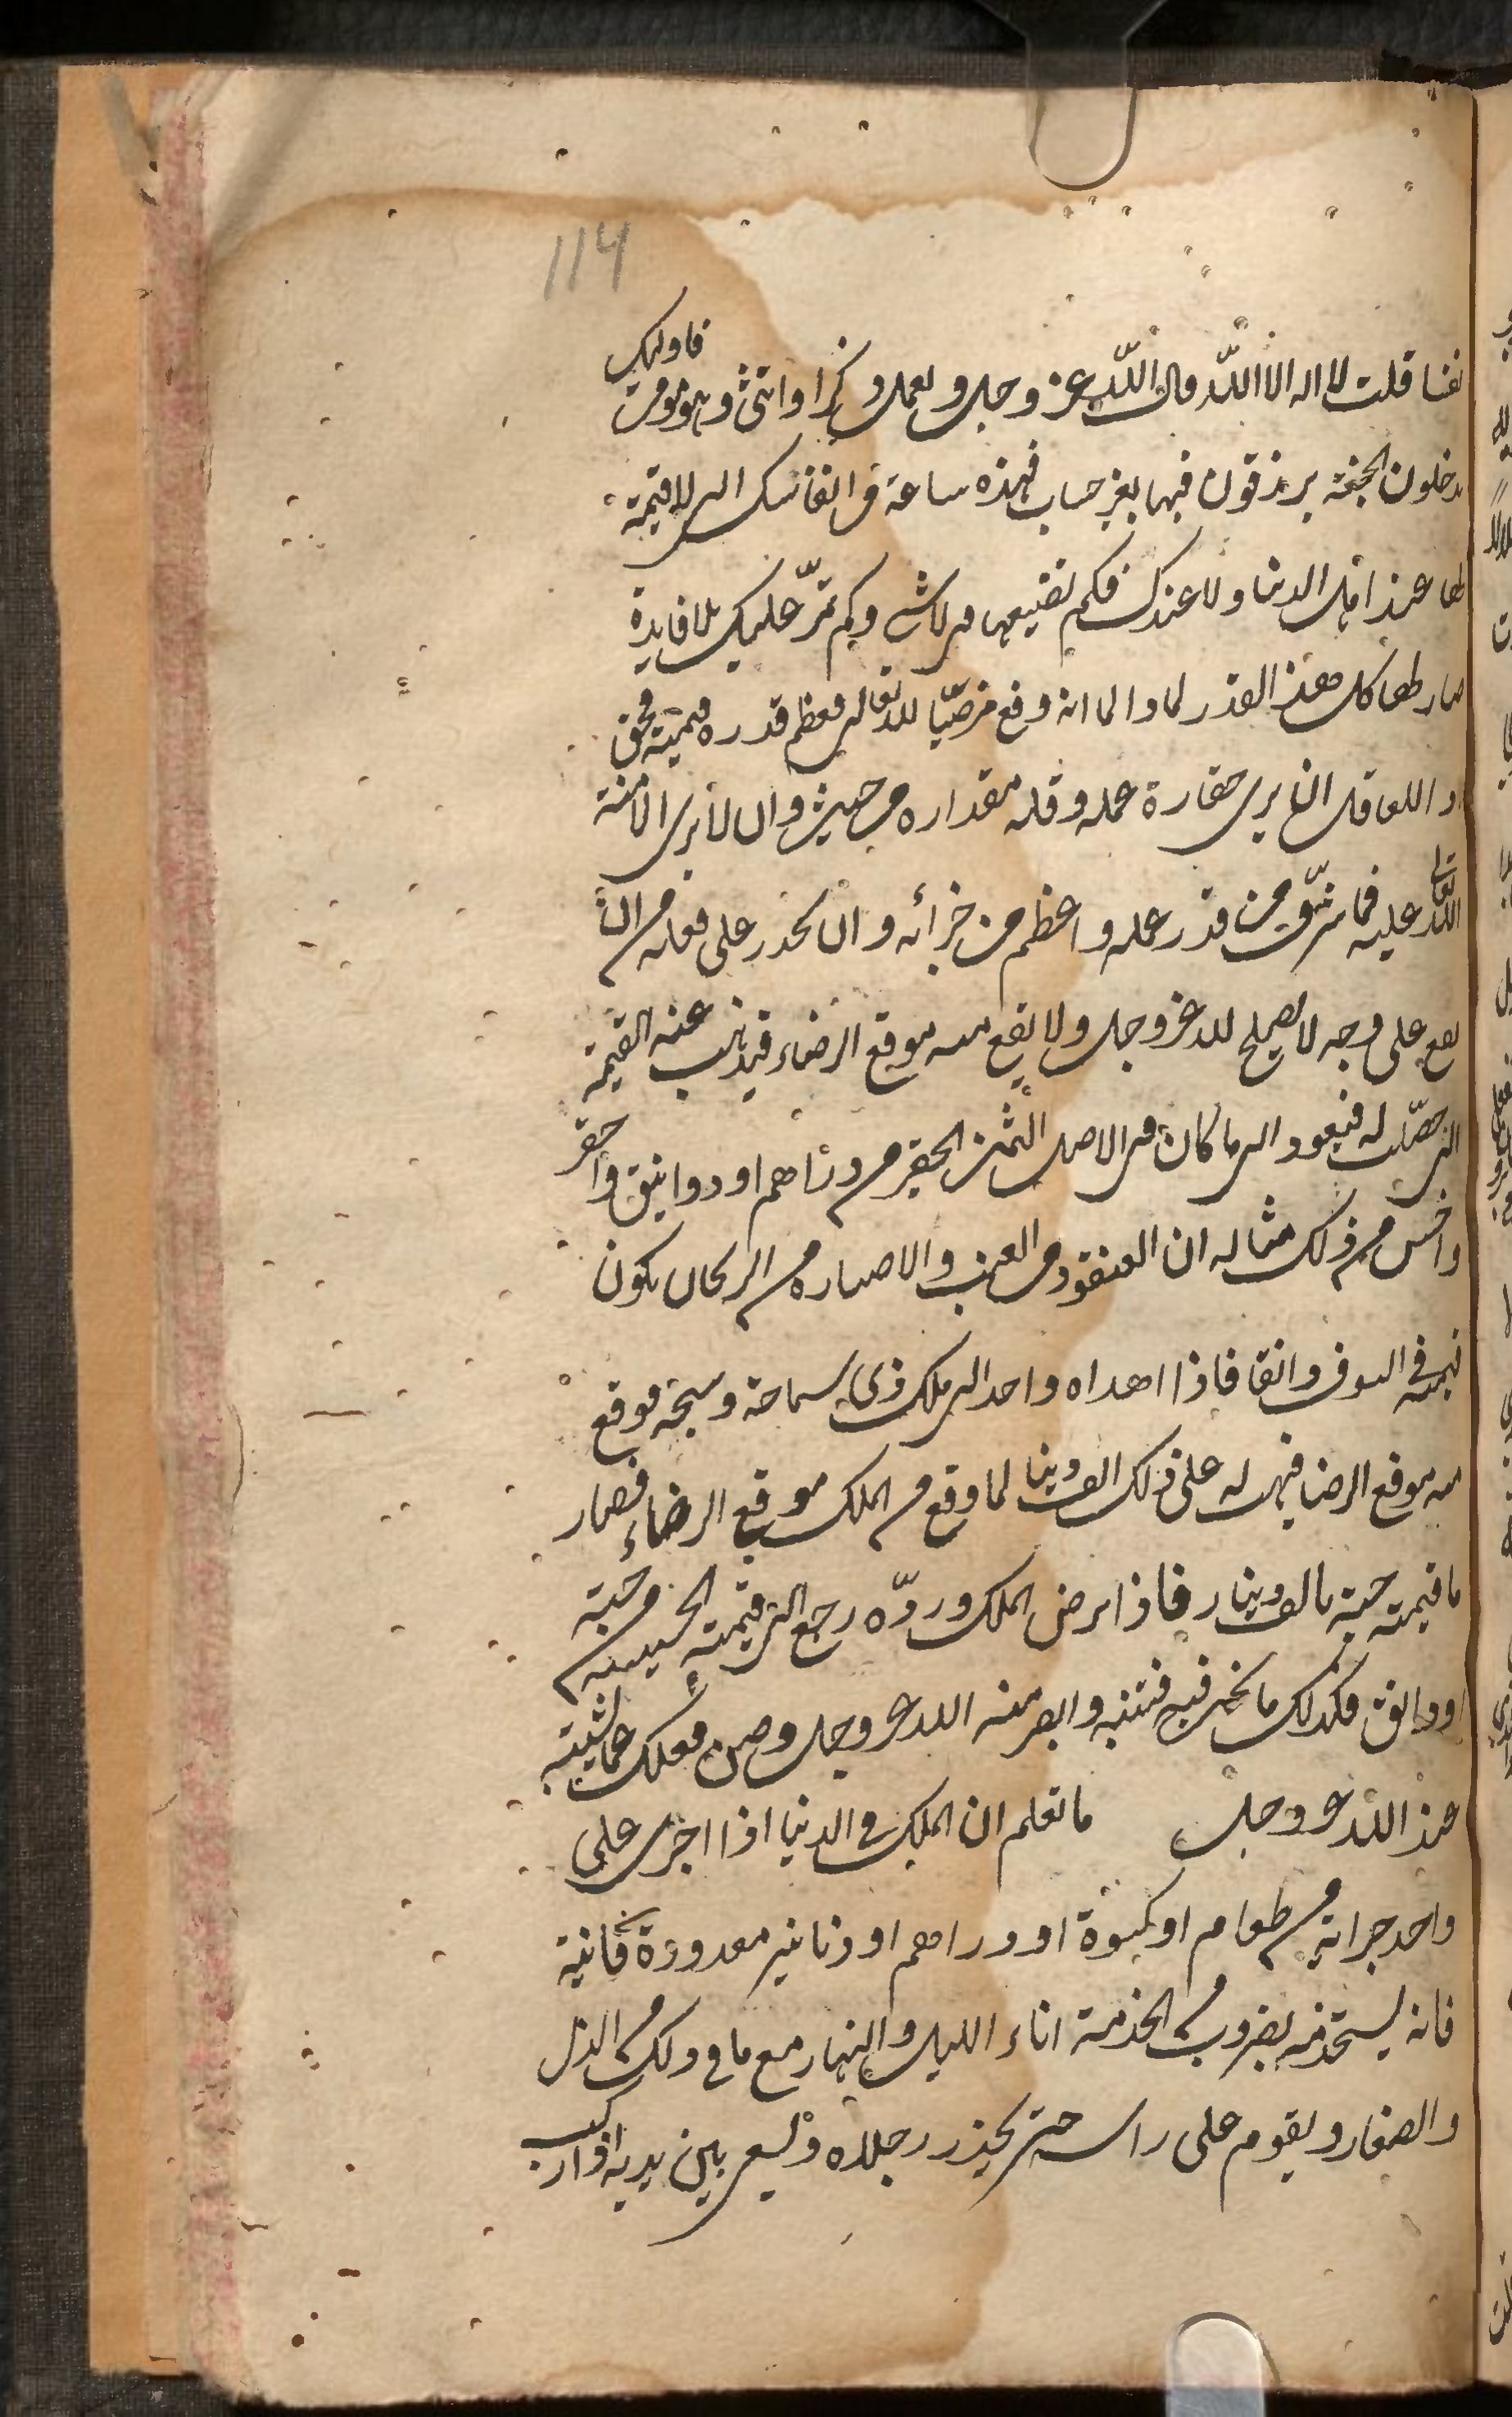 114
نفسا قلت لا اله الا اللّه قال اللّه عز وجل ومن عمل ذكرا او انثى وهو مؤمن فاولئك
يدخلون الجنة يرزقون فيها بغير حساب فهذه ساعة من انفاسك التي لا قيمة
لها عند اهل الدنيا ولا عندك فكم تضيعها في لا شي وكم تمرّ عليك بلا فايدة
صار لها كل هذا القدر لما والما انه وقع مرضيّا لله تعالى فعظم قدره قيمته فحق
اذ للعاقل ان يرى حقارة عمله وقلة مقداره من حيث وان لا يرى الا منة
الله تعالى عليه فما شرّف من قدر عمله واعظم من جزائه وان يحذر على فعله من ان
يقع على وجه لا يصلح لله عز وجل ولا يقع منه موقع الرضاء فيذهب عنه القيمة
التي حصّلت له فيعود الى ما كان في الاصل الثمن الحقير من دراهم او دوانيق واحقر
واخس من ذلك مثاله ان العنقود من العنب والاضبارة من الريحان يكون
قيمته في السوق دانقا فاذا اهداه واحد الى ملك ذي سماحة وسجية فوقع
منه موقع الرضا فيهب له على ذلك الف دينار لما وقع من الملك موقع الرضاء فصار
ما قيمته حبة بالف دينار فاذا لم يرض الملك وردّه رجع الى قيمته الخسيسة من حبة
او دانق فكذلك ما نحن فيه فتنبه وابصر منة الله عز وجل وصن فعلك عما يشينه
عند الله عز وجل ما تعلم ان الملك في الدنيا اذا اجرى على
واحد جراية من طعام او كسوة او دراهم او دنانير معدودة فانية
فانه يستخدمه بضروب من الخدمة اناء الليل والنهار مع ما في ذلك من الذل
والصغار ويقوم على راسه حتى يخدر رجلاه ويسعى بين يديه اذا ركب